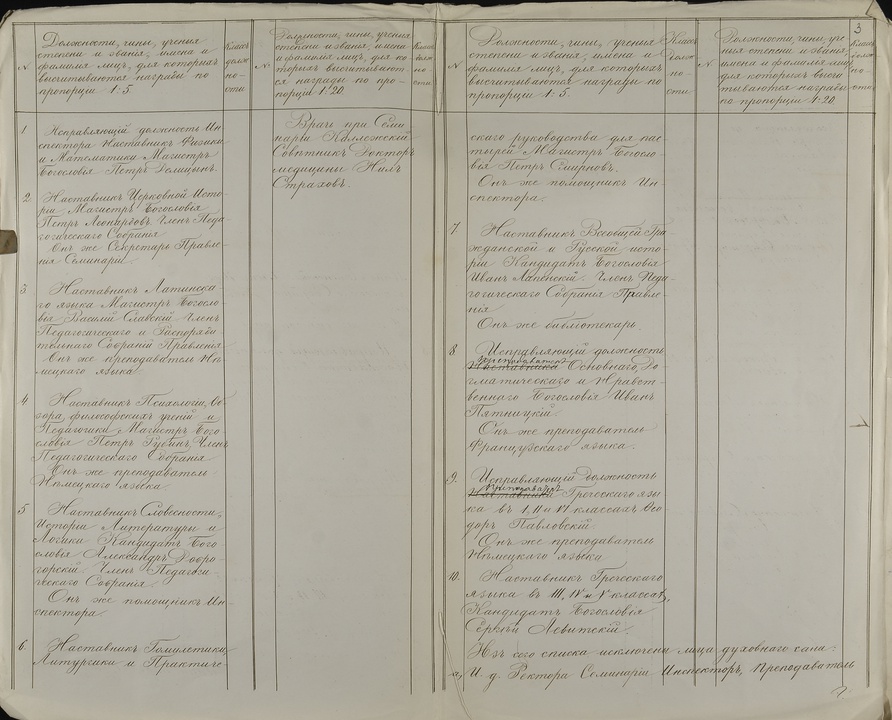 №
Должности, чины, ученыя
степени и званія, имена и
фамиліи лицъ, для которыхъ
высчитываются награды по
пропорціи 1:5.
Классъ
долж-
но-
сти
№
Должности, чины, ученыя
степени и званія, имена
и фамиліи лицъ, для ко-
торыхъ высчитывают-
ся награды по про-
порціи 1:20
Классъ
долж
но
сти
1
Исправляющій должность Ин-
спектора Наставникъ Физики
и Математики Магистръ
Богословія Петръ
2.
Наставникъ Церковной Исто-
ріи, Магистръ Богословія
Петръ Членъ Педа-
гогическаго Собранія
Онъ же Секретарь Правле-
нія Семинаріи.
3
Наставникъ Латинска-
го языка Магистръ Богосло-
вія Василій Славскій Членъ
Педагогическаго и Распоряди
тельнаго Собраній Правленія
Онъ же преподаватель Нѣ-
мецкаго языка.
4
Наставникъ Психологіи, Об-
зора философскихъ ученій и
Педагогики, Магистръ Бого-
словія Петръ Членъ
Педагогическаго Собранія
Онъ же преподаватель
Нѣмецкаго языка.
5
Наставникъ Словесности,
Исторіи Литературы и
Логики Кандидатъ Бого-
словія Александръ Добро-
горскій. Членъ Педагоги-
ческаго Собранія.
Онъ же помощникъ Ин-
спектора.
6.
Наставникъ Гомилетики
Литургики и Практиче-
Врачъ при Семи-
наріи Коллежскій
Совѣтникъ Докторъ
медицины Нилъ
Страховъ.
№
Должности, чины, ученыя
степени и званія, имена
и фамиліи лицъ, для которыхъ
высчитываются награды по
пропорціи 1:5.
Классъ
долж
но-
сти
№
Должности, чины, уче-
ныя степени и званія
имена и фамиліи лицъ
для которыхъ высчи
тываются награды
по пропорціи 1:20
3
Классъ
долж
но
сти
скаго руководства для пас-
тырей Магистръ Богосло-
вія Петръ Смирновъ.
Онъ же помощникъ Ин-
спектора.
7
Наставникъ Всеобщей Гра-
жданской и Русской исто-
ріи Кандидатъ Богословія
Иванъ Членъ Педа-
гогическаго Собранія Правле-
нія
Онъ же библіотекарь
8
Исправляющій должность
преподавателя
Наставника Основнаго, До-
гматическаго и Нравст-
веннаго Богословія Иванъ
Пятницкій.
Онъ же преподаватель
Французскаго языка.
9.
Исправляющій должность
преподавателя
Наставника Греческаго язы
ка въ I, II и VI классахъ Ѳео
доръ Павловскій
Онъ же преподаватель
Нѣмецкаго языка
10.
Наставникъ Греческаго
языка въ III, IV и V классахъ,
Кандидатъ Богословія
Сергѣй
Изъ сего списка исключены лица духовнаго сана:
а, И. д. Ректора Семинаріи Инспекторъ, Преподаватель